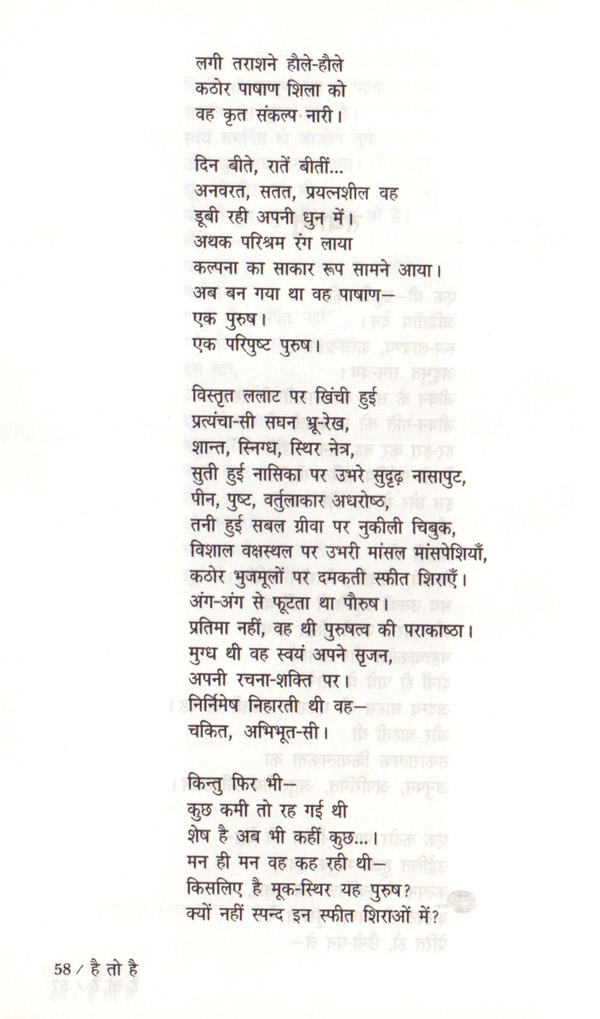 लगी तराशने हौले-हौले
कठोर पाषाण शिला को
वह कृत संकल्प नारी।
दिन बीते, रातें बीतीं...
अनवरत, सतत, प्रयत्नशील वह
डूबी रही अपनी धुन में।
अथक परिश्रम रंग लाया
कल्पना का साकार रूप सामने आया।
अब बन गया था वह पाषाण—
एक पुरुष।
एक परिपुष्ट पुरुष।
विस्तृत ललाट पर खिंची हुई
प्रत्यंचा-सी सघन भ्रू-रेख,
शान्त, स्निग्ध, स्थिर नेत्र,
सुती हुई नासिका पर उभरे सुदृढ़ नासापुट,
पीन, पुष्ट, वर्तुलाकार अधरोष्ठ,
तनी हुई सबल ग्रीवा पर नुकीली चिबुक,
विशाल वक्षस्थल पर उभरी मांसल मांसपेशियाँ,
कठोर भुजमूलों पर दमकती स्फीत शिराएँ।
अंग-अंग से फूटता था पौरुष।
प्रतिमा नहीं, वह थी पुरुषत्व की पराकाष्ठा।
मुग्ध थी वह स्वयं अपने सृजन,
अपनी रचना-शक्ति पर।
निर्निमेष निहारती थी वह—
चकित, अभिभूत-सी।
किन्तु फिर भी—
कुछ कमी तो रह गई थी
शेष है अब भी कहीं कुछ...।
मन ही मन वह कह रही थी—
किसलिए है मूक-स्थिर यह पुरुष?
क्यों नहीं स्पन्द इन स्फीत शिराओं में?
58 / है तो है